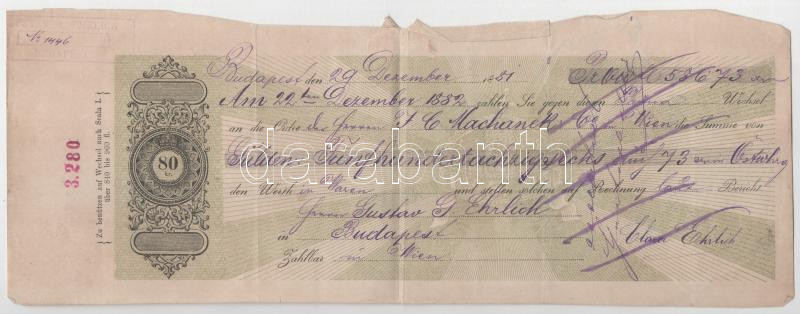 No 1446
Budapest den 29 Dezember 1881
Am 22ten Dezember 1882 zahlen Sie gegen diesen Prima Wechsel
an die Ordre der Herren F C Machanek & Co in Wien die Summe von
Gulden Fünfhundertachtzigsechs 73
den Werth in Waren und stellen solchen auf Rechnung laut Bericht
Herrn Gustav G Ehrlich
in Budapest
Zahlbar in Wien
Ehrlich
3.280
Zu benützen auf Wechsel nach Scala I.
über 840 bis 960 fl.
80
kr.
Darabanth